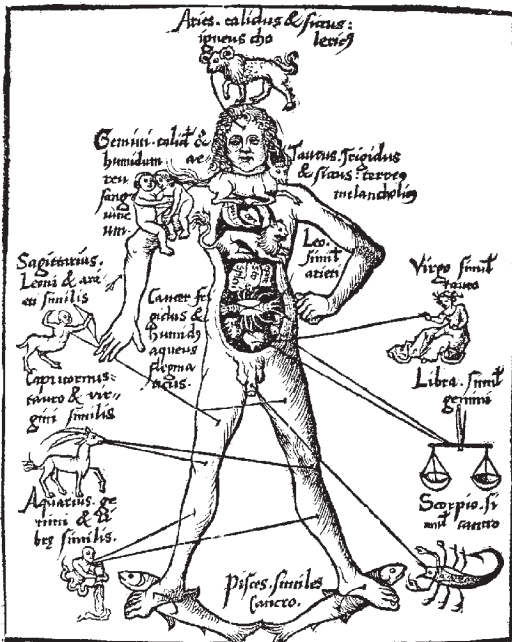 Aries. calidus & siccus:
igneus cho lericꝰ
Gemini. calid⁹ &
humidum ae-
reu
sang
uine
um.
Taurus. frigidus
& siccus. terreꝰ
melancholicꝰ
Leo.
simil
arieti
Sagittarius.
Leoni & ari
eti similis
Cancer fri
gidus &
humidꝰ
aqueus
flegma
ticus.
Virgo simil
tauro
Capricornus:
tauro & vir-
gini similis
Libra. simil
gemini
Aquarius. ge
mini & li
brę similis.
Scorpio. si
mil cancro
Pisces. similes
Cancro.